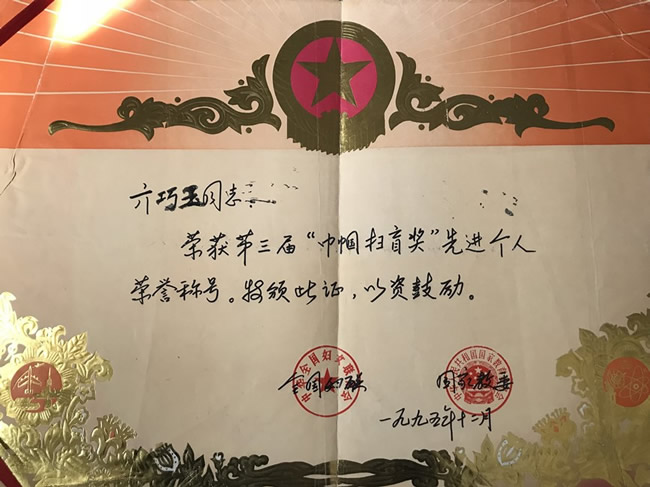 亓巧玉同志
荣获第三届“巾帼扫盲奖”先进个人
荣誉称号。特颁此证，以资鼓励。
中华全国妇女联合会
全国妇联
中华人民共和国国家教育委员会
国家教委
一九九五年十二月